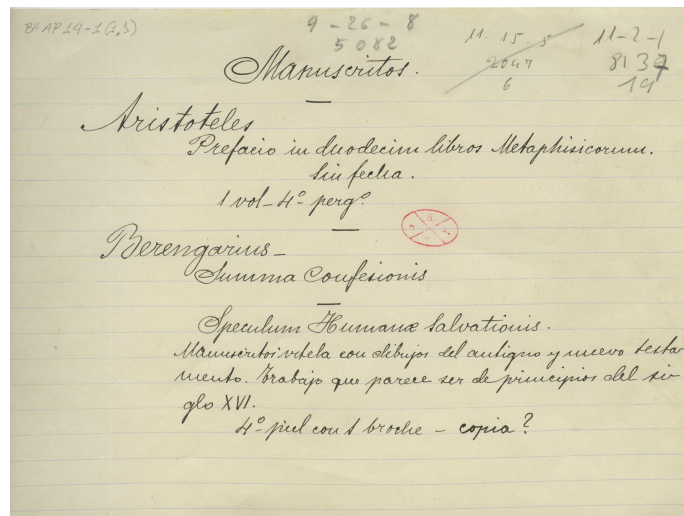 BH AP 19-1 (1,3)
9 - 26 - 8
5082
11. 15. 5
2047
6
11-2-1
8137
19
Manuscritos.
Aristoteles
Prefacio in duodecim libros Metaphisicorum.
Sin fecha.
1 vol - 4º pergº
Berengarius -
Summa Confesionis
Speculum Humanæ Salvationis.
Manuscritos vitela con dibujos del antiguo y nuevo testa-
mento. Trabajo que parece ser de principios del si-
glo XVI.
4º piel con 1 broche - copia?